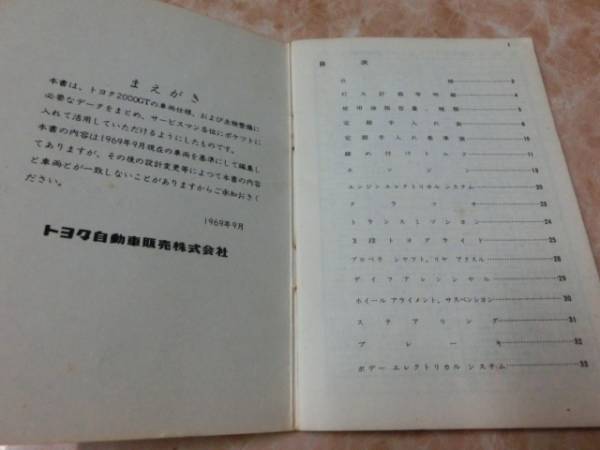 まえがき
本書は、トヨタ2000GTの車両仕様、および点検整備に
必要なデータをまとめ、サービスマン各位にポケットに
入れて活用していただけるようにしたものです。
本書の内容は1969年9月現在の車両を基準にして編集し
てありますが、その後の設計変更等によって本書の内容
と車両とが一致しないことがありますからご承知おきく
ださい。
1969年9月
トヨタ自動車販売株式会社
1
目 次
仕 様 2
灯火計器等明細
使用油脂容量、種類
定期手入れ表 8
定期手入れ基準表 10
締め付けトルク 11
エンジン
エンジン エレクトリカル システム
クラッチ
トランスミッション 24
25
プロペラ シャフト, リヤ アクスル 28
ディファレンシャル 29
ホイール アライメント, サスペンション 30
ステアリング 31
ブレーキ 32
ボデー エレクトリカル システム 33